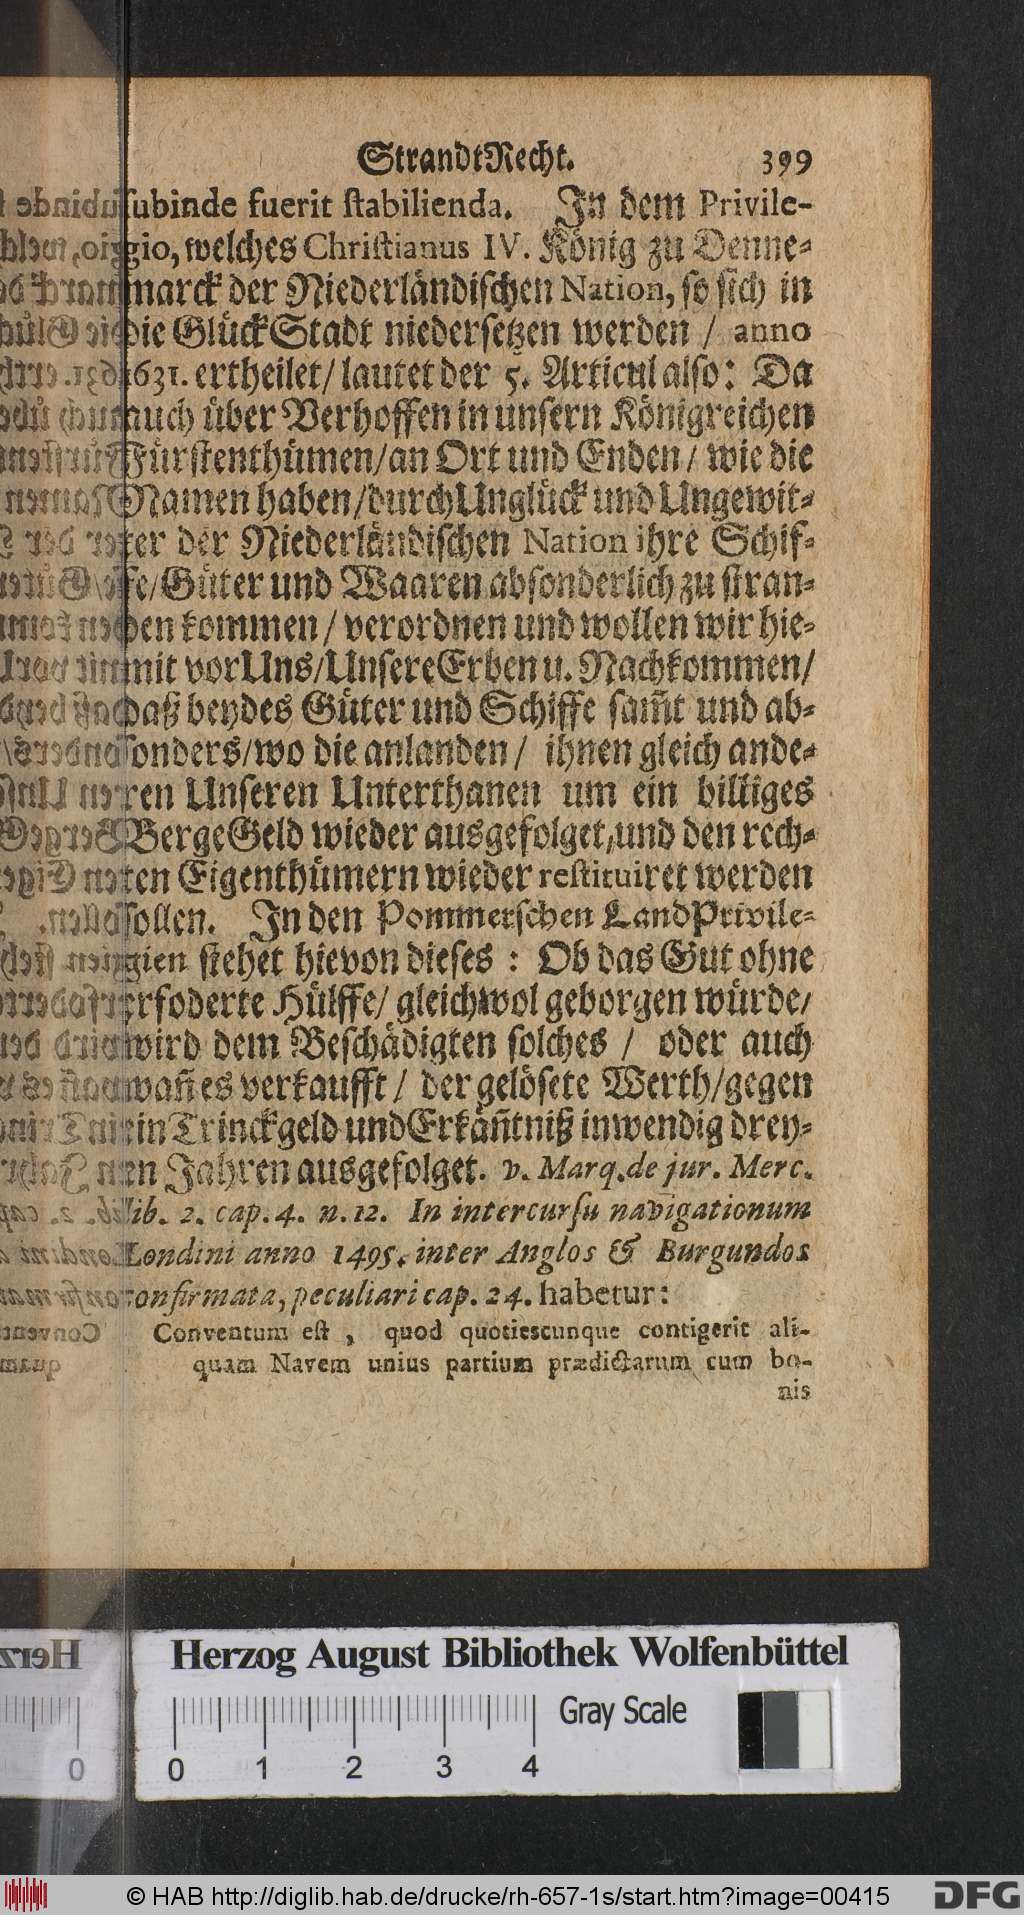 StrandtRecht. 399
subinde fuerit stabilienda. In dem Privile-
gio, welches Christianus IV. König zu Denne-
marck der Niederländischen Nation, so sich in
die GlückStadt niedersetzen werden / anno
1631. ertheilet / lautet der 5. Articul also: Da
auch über Verhoffen in unsern Königreichen
Fürstenthümen / an Ort und Enden / wie die
Namen haben / durch Unglück und Ungewit-
ter der Niederländischen Nation ihre Schif-
fe / Güter und Waaren absonderlich zu stran-
den kommen / verordnen und wollen wir hie-
mit vor Uns / Unsere Erben u. Nachkommen /
daß beydes Güter und Schiffe sam̃t und ab-
sonders / wo die anlanden / ihnen gleich ande-
ren Unseren Unterthanen um ein billiges
BergeGeld wieder ausgefolget / und den rech-
ten Eigenthümern wieder restituiret werden
sollen. In den Pommerschen LandPrivile-
gien stehet hievon dieses : Ob das Gut ohne
erfoderte Hülffe / gleichwol geborgen würde /
wird dem Beschädigten solches / oder auch
wañ es verkaufft / der gelösete Werth / gegen
ein Trinckgeld und Erkäñtniß inwendig drey-
en Jahren ausgefolget. v. Marq. de jur. Merc.
lib. 2. cap. 4. n. 12. In intercursu navigationum
Londini anno 1495. inter Anglos & Burgundos
confirmata, peculiari cap. 24. habetur:
Conventum est , quod quotiescunque contigerit ali-
quam Navem unius partium prædictarum cum bo-
nis
Herzog August Bibliothek Wolfenbüttel
Gray Scale
0 0 1 2 3 4
© HAB http://diglib.hab.de/drucke/rh-657-1s/start.htm?image=00415 DFG